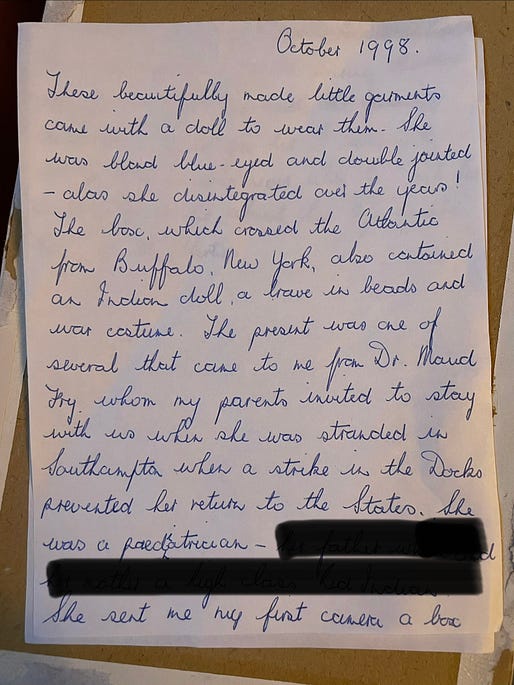 October 1998.
These beautifully made little garments
came with a doll to wear them. She
was blond blue-eyed and double jointed
- alas she disintegrated over the years!
The box, which crossed the Atlantic
from Buffalo, New York, also contained
an Indian doll, a brave in beads and
war costume. The present was one of
several that came to me from Dr. Maud
Fry whom my parents invited to stay
with us when she was stranded in
Southampton when a strike in the Docks
prevented her return to the States. She
was a paediatrician -
She sent me my first camera a box